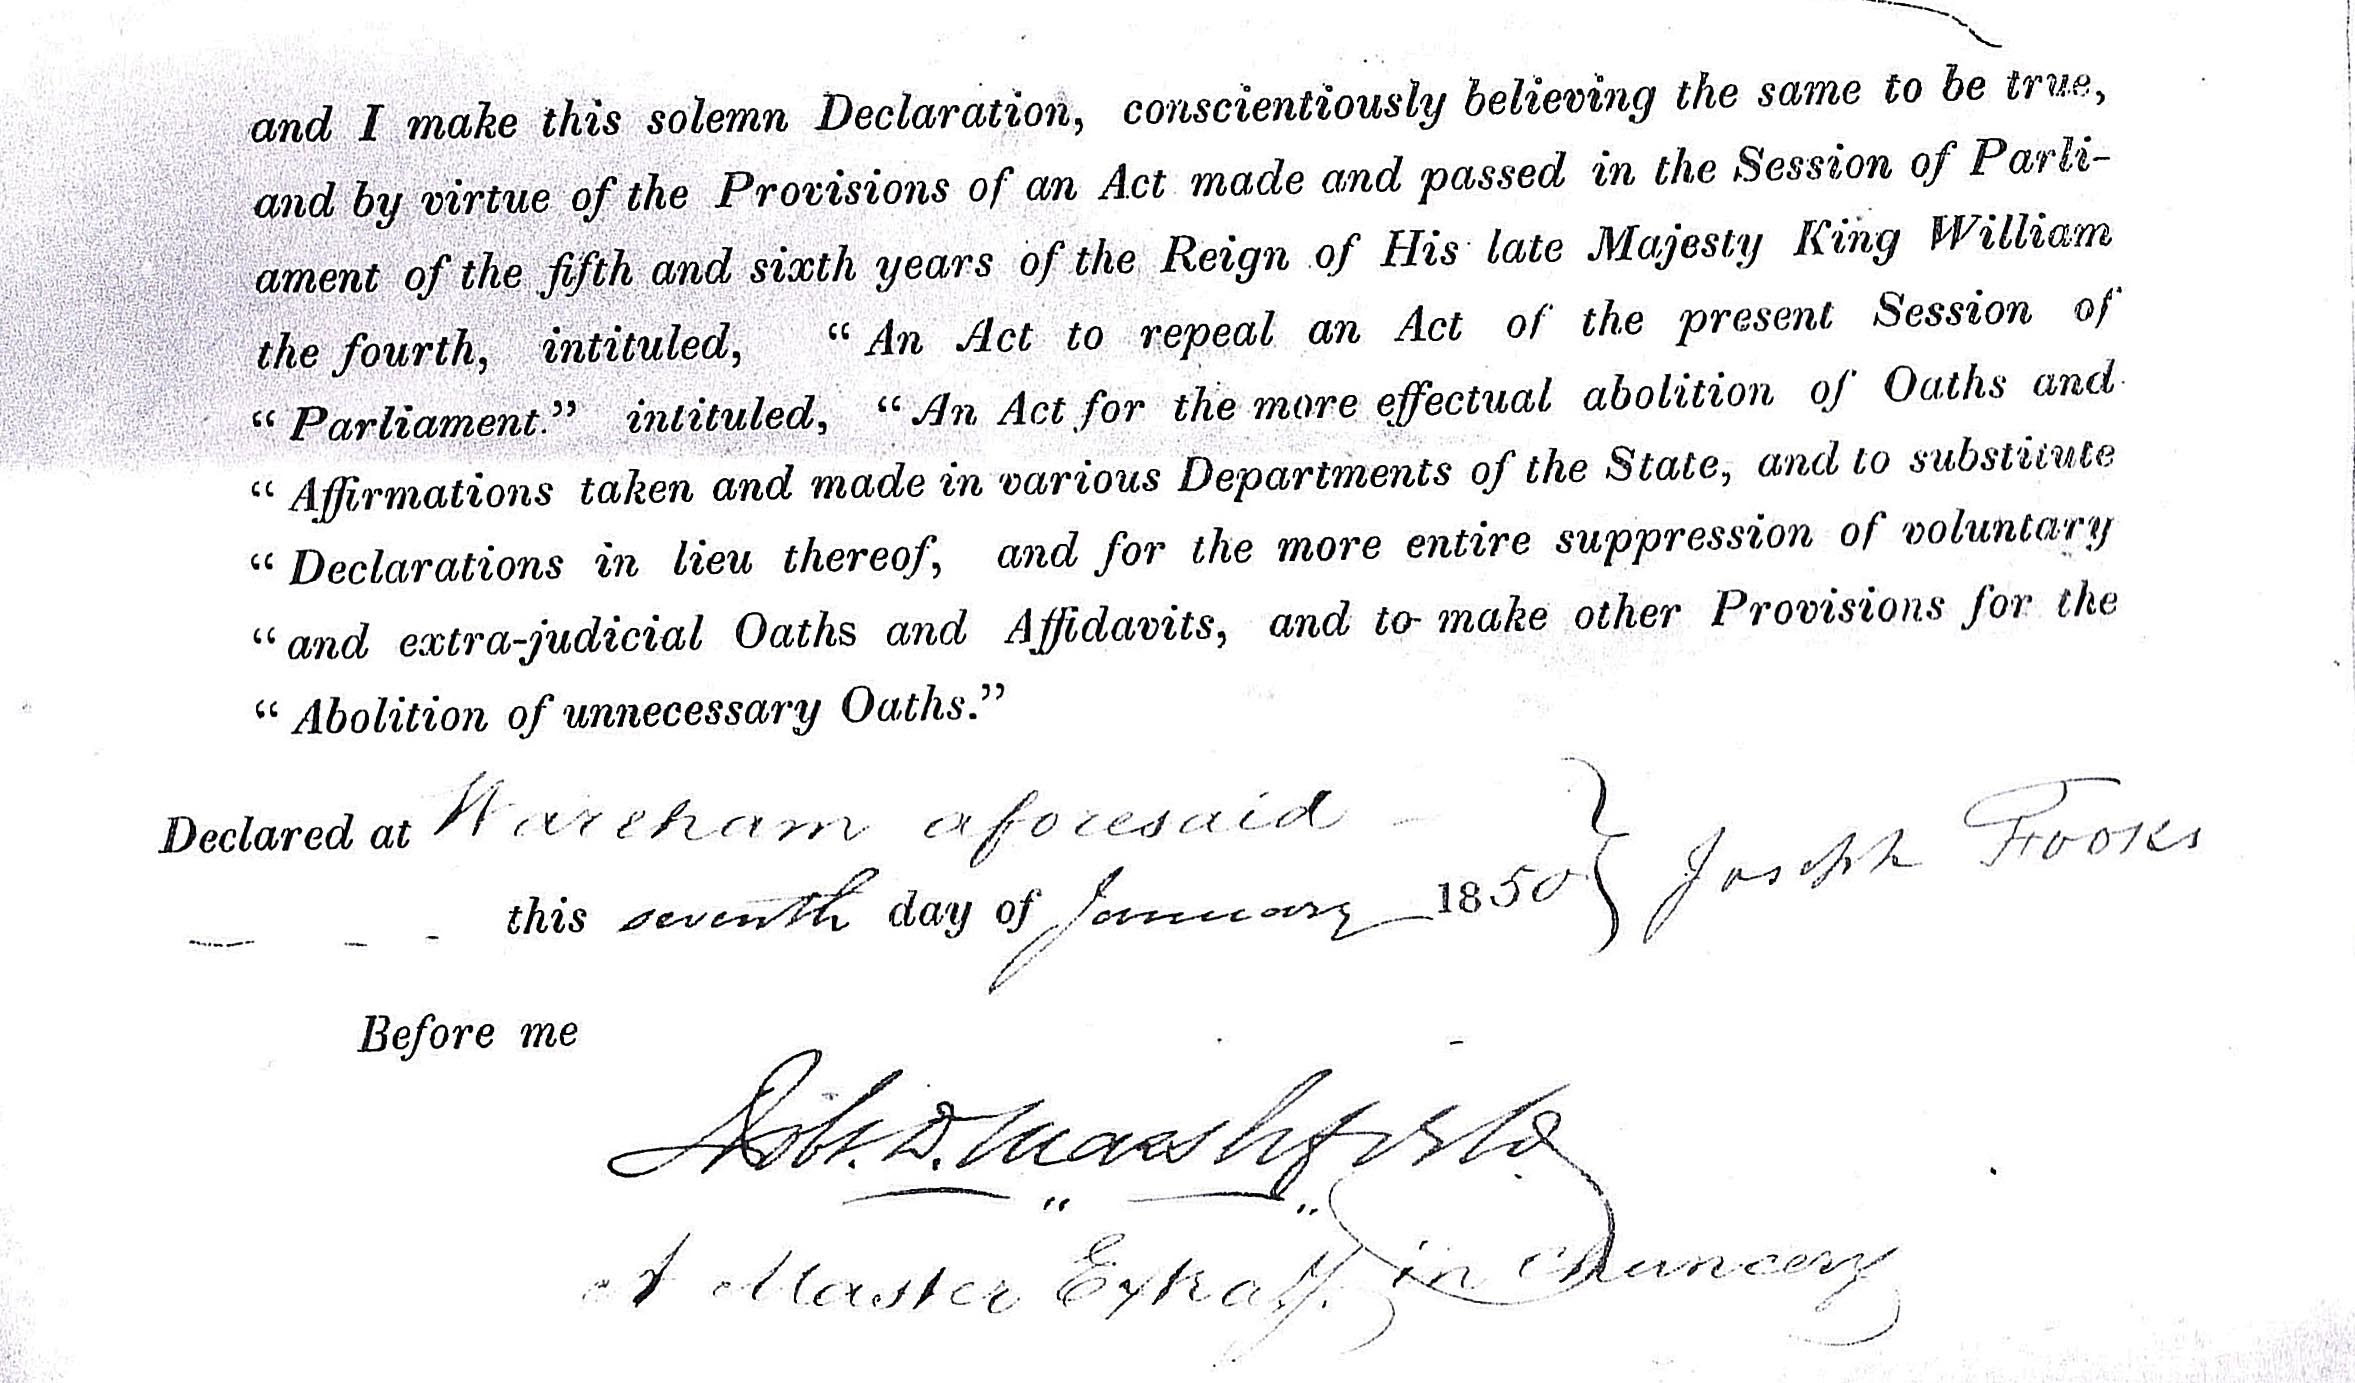 and I make this solemn Declaration, conscientiously believing the same to be true,
and by virtue of the Provisions of an Act made and passed in the Session of Parli-
ament of the fifth and sixth years of the Reign of His late Majesty King William
the fourth, intituled, “ An Act to repeal an Act of the present Session of
“ Parliament.” intituled, “ An Act for the more effectual abolition of Oaths and
“ Affirmations taken and made in various Departments of the State, and to substitute
“ Declarations in lieu thereof, and for the more entire suppression of voluntary
“ and extra-judicial Oaths and Affidavits, and to make other Provisions for the
“ Abolition of unnecessary Oaths.”
Declared at Wareham aforesaid
this seventh day of January 1850
Joseph Fooks
Before me
Robt. D. Marshfield
A Master Extray. in Chancery